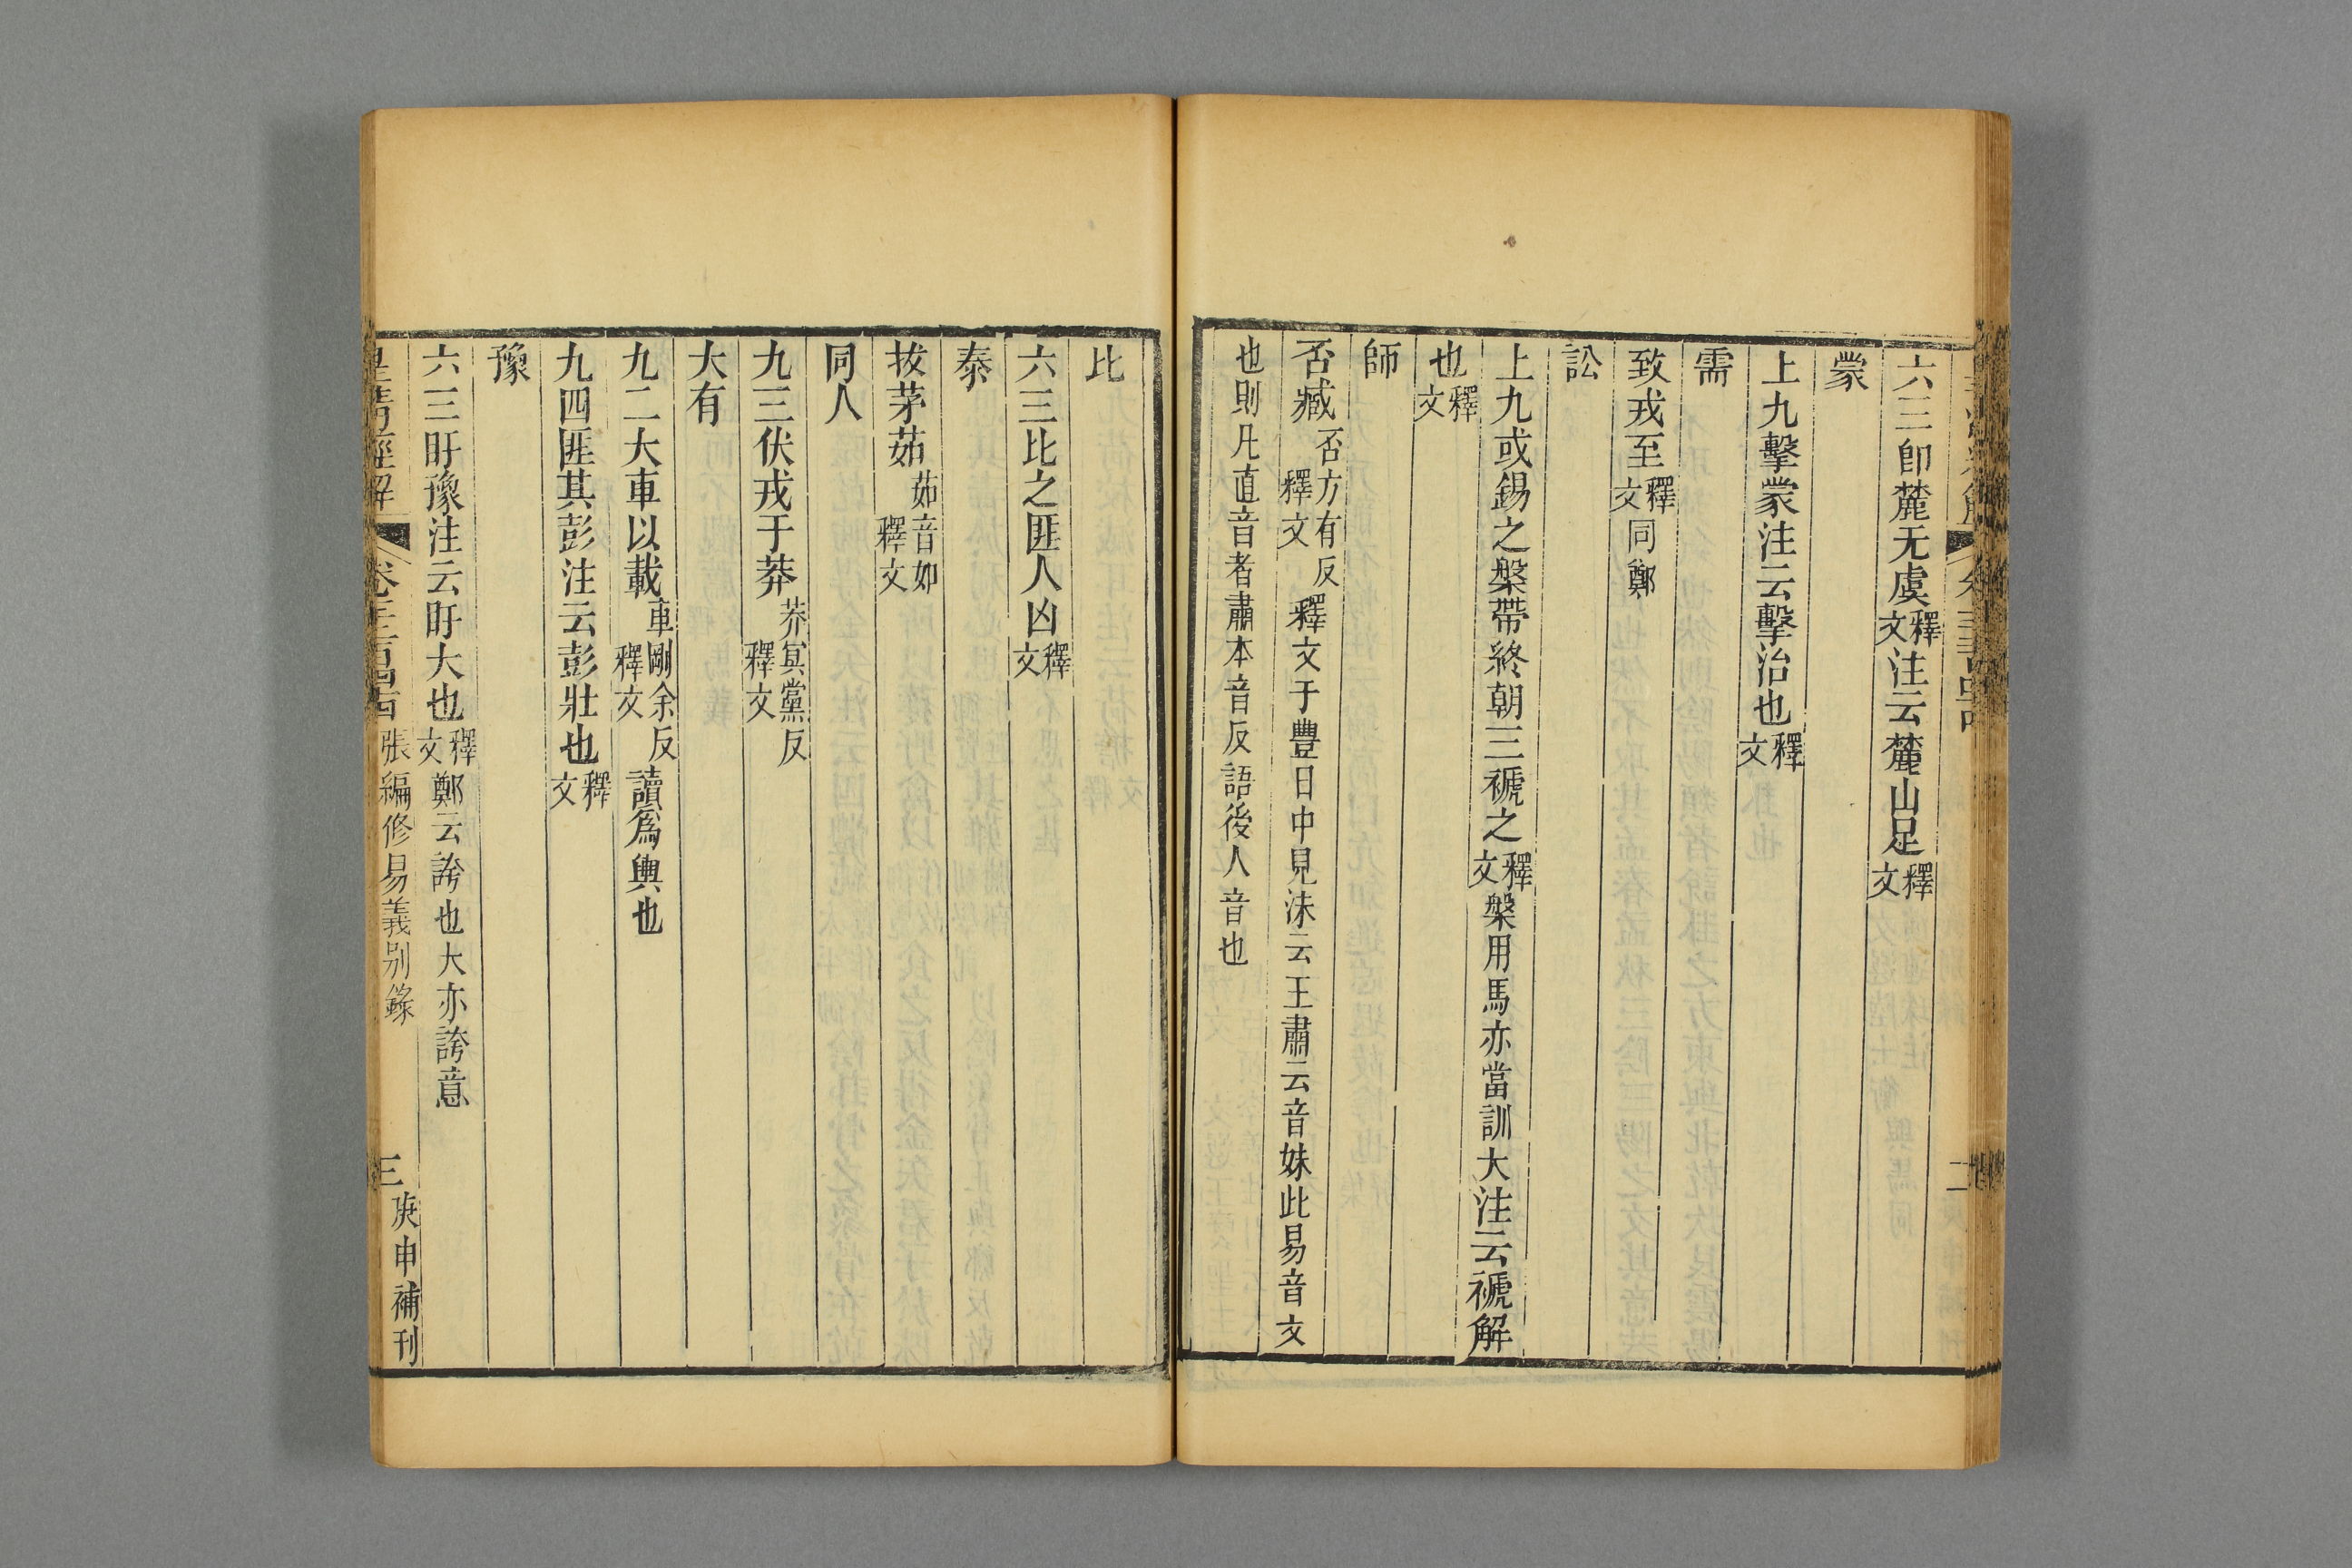 六三卽麓无虞釋文注云麓山足釋文
蒙
上九擊蒙注云擊治也釋文
需
致戎至釋文同鄭
訟
上九或錫之槃帶終朝三褫之釋文槃用馬亦當訓大注云褫解
也釋文
師
否臧否方有反釋文釋文于豐日中見沬云王肅云音妹此易音文
也則凡直音者肅本音反語後人音也
比
六三比之匪人凶釋文
泰
拔茅茹茹音如釋文
同人
九三伏戎于莽莽冥黨反釋文
大有
九二大車以載車剛余反釋文讀爲輿也
九四匪其彭注云彭壯也釋文
豫
六三盱豫注云盱大也釋文鄭云誇也大亦誇意
皇淸經解 卷千二百四 張編修易義別錄 三 庚申補刊